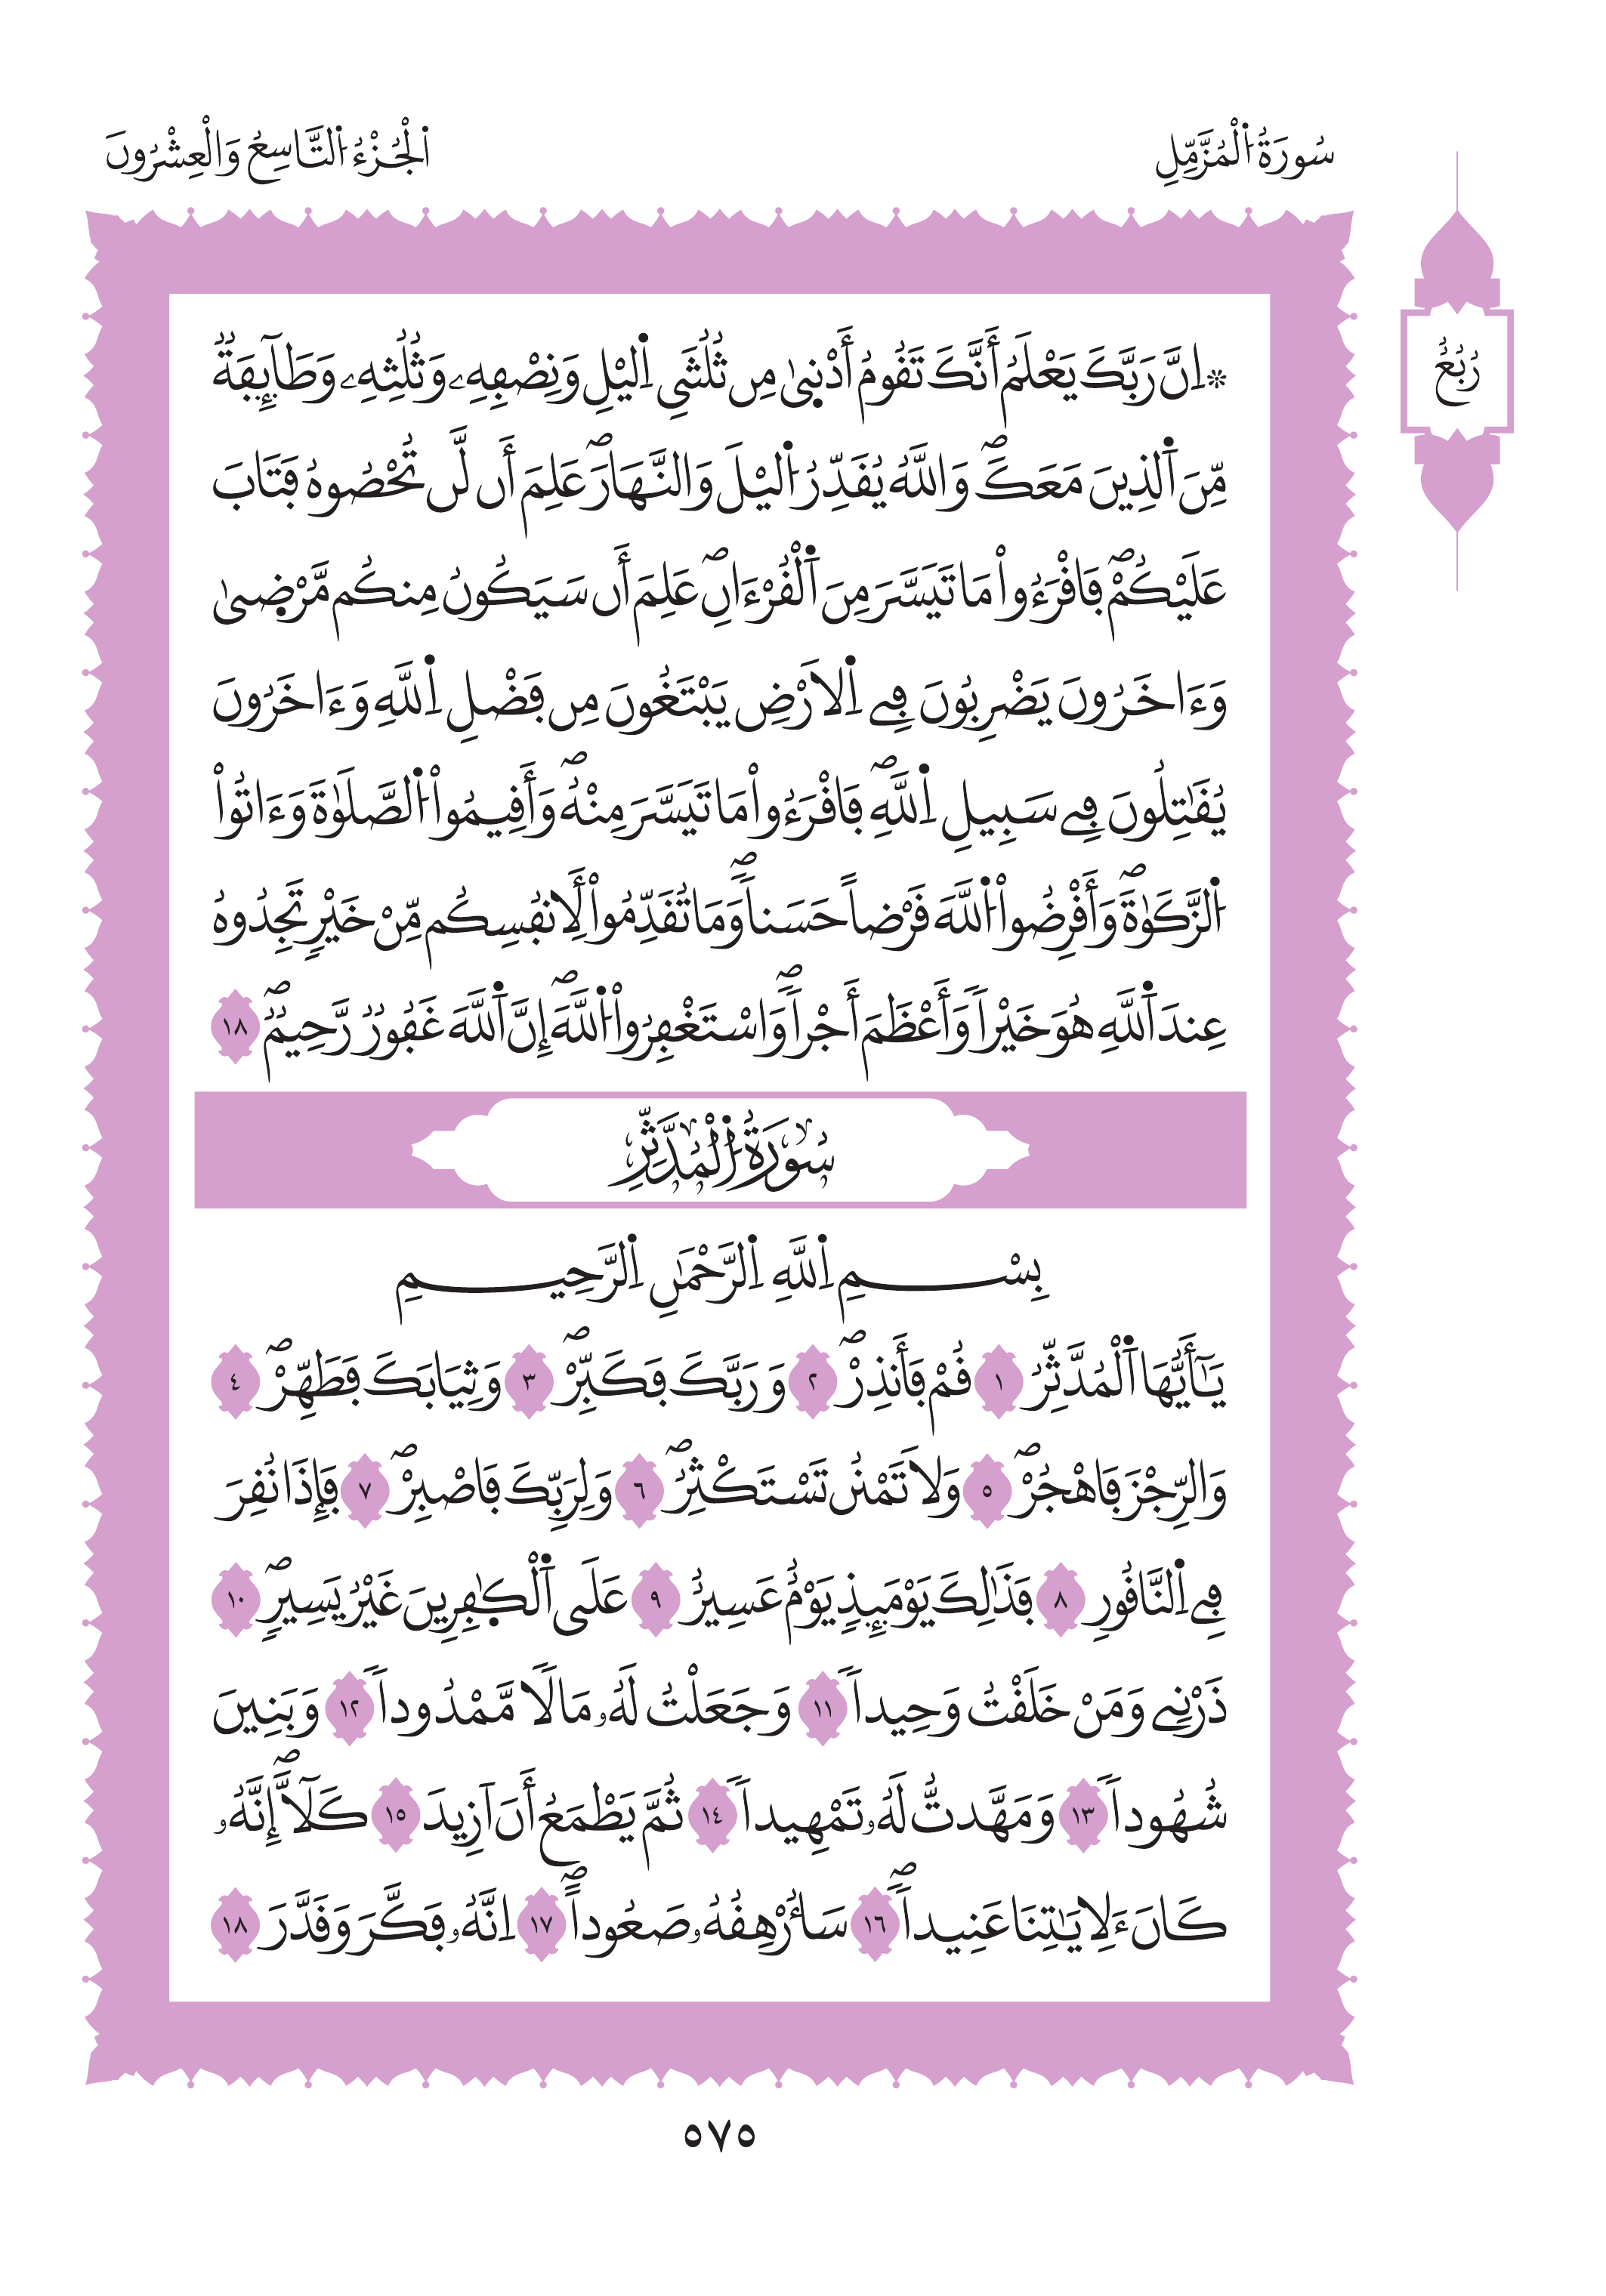 سُورَةُ اُ۬لْمُزَّمِّلِ
اَ۬لْجُزْءُ اُ۬لتَّاسِعُ وَالْعِشْرُونَ
رُبُعُ
۞اِنَّ رَبَّكَ يَعْلَمُ أَنَّكَ تَقُومُ أَدْن۪يٰ مِن ثُلُثَيِ اِ۬ليْلِ وَنِصْفِهِۦ وَثُلُثِهِۦ وَطَآئِفَةٌ
مِّنَ اَ۬لذِينَ مَعَكَۖ وَاللَّهُ يُقَدِّرُ اُ۬ليْلَ وَالنَّهَارَۖ عَلِمَ أَن لَّن تُحْصُوهُ فَتَابَ
عَلَيْكُمْۖ فَاقْرَءُواْ مَا تَيَسَّرَ مِنَ اَ۬لْقُرْءَانِۖ عَلِمَ أَن سَيَكُونُ مِنكُم مَّرْض۪يٰ
وَءَاخَرُونَ يَضْرِبُونَ فِے اِ۬لَارْضِ يَبْتَغُونَ مِن فَضْلِ اِ۬للَّهِ وَءَاخَرُونَ
يُقَٰتِلُونَ فِے سَبِيلِ اِ۬للَّهِۖ فَاقْرَءُواْ مَا تَيَسَّرَ مِنْهُۖ وَأَقِيمُواْ اُ۬لصَّلَوٰةَ وَءَاتُواْ
اُ۬لزَّكَوٰةَۖ وَأَقْرِضُواْ اُ۬للَّهَ قَرْضاً حَسَناٗۖ وَمَا تُقَدِّمُواْ لِأَنفُسِكُم مِّنْ خَيْرٖ تَجِدُوهُ
عِندَ اَ۬للَّهِ هُوَ خَيْراٗ وَأَعْظَمَ أَجْراٗۖ وَاسْتَغْفِرُواْ اُ۬للَّهَۖ إِنَّ اَ۬للَّهَ غَفُورٞ رَّحِيمٌۖ ١٨
سُورَةُ اُ۬لْمُدَّثِّرِ
بِسْمِ اِ۬للَّهِ اِ۬لرَّحْمَٰنِ اِ۬لرَّحِيمِ
يَٰٓأَيُّهَا اَ۬لْمُدَّثِّرُ ١ قُمْ فَأَنذِرْۖ ٢ وَرَبَّكَ فَكَبِّرْۖ ٣ وَثِيَابَكَ فَطَهِّرْۖ ٤
وَالرِّجْزَ فَاهْجُرْۖ ٥ وَلَا تَمْنُن تَسْتَكْثِرُۖ ٦ وَلِرَبِّكَ فَاصْبِرْۖ ٧ فَإِذَا نُقِرَ
فِے اِ۬لنَّاقُورِ ٨ فَذَٰلِكَ يَوْمَئِذٖ يَوْمٌ عَسِيرٌ ٩ عَلَي اَ۬لْكٰ۪فِرِينَ غَيْرُ يَسِيرٖۖ ١٠
ذَرْنِے وَمَنْ خَلَقْتُ وَحِيداٗ ١١ وَجَعَلْتُ لَهُۥ مَالٗا مَّمْدُوداٗ ١٢ وَبَنِينَ
شُهُوداٗ ١٣ وَمَهَّدتُّ لَهُۥ تَمْهِيداٗ ١٤ ثُمَّ يَطْمَعُ أَنَ اَزِيدَ ١٥ كَلَّآۖ إِنَّهُۥ
كَانَ ءَلِايَٰتِنَا عَنِيداٗۖ ١٦ سَأُرْهِقُهُۥ صَعُوداًۖ ١٧ اِنَّهُۥ فَكَّرَ وَقَدَّرَ ١٨
٥٧٥